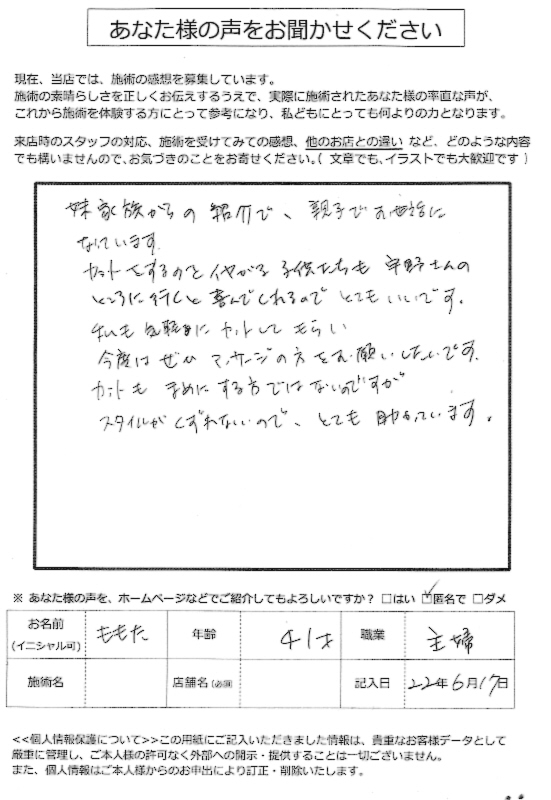 あなた様の声をお聞かせください
現在、当店では、施術の感想を募集しています。
施術の素晴らしさを正しくお伝えするうえで、実際に施術されたあなた様の率直な声が、
これから施術を体験する方にとって参考になり、私どもにとっても何よりの力となります。
来店時のスタッフの対応、施術を受けてみての感想、他のお店との違い など、どのような内容
でも構いませんので、お気づきのことをお寄せください。( 文章でも、イラストでも大歓迎です )
妹家族からの紹介で、親子でお世話に
なっています。
カットをするのをイヤがる子供たちも宇野さんの
ところに行くと喜んでくれるのでとてもいいです。
私も気軽にカットしてもらい
今度はぜひマッサージの方をお願いしたいです。
カットもまめにする方ではないのですが
スタイルがくずれないので、とても助かっています。
※ あなた様の声を、ホームページなどでご紹介してもよろしいですか? □はい ☑匿名で □ダメ
お名前
(イニシャル可)
ももた
年齢
41才
職業
主婦
施術名
店舗名(必須)
記入日
22年6月17日
<<個人情報保護について>>この用紙にご記入いただきました情報は、貴重なお客様データとして
厳重に管理し、ご本人様の許可なく外部への開示・提供することは一切ございません。
また、個人情報はご本人様からのお申出により訂正・削除いたします。